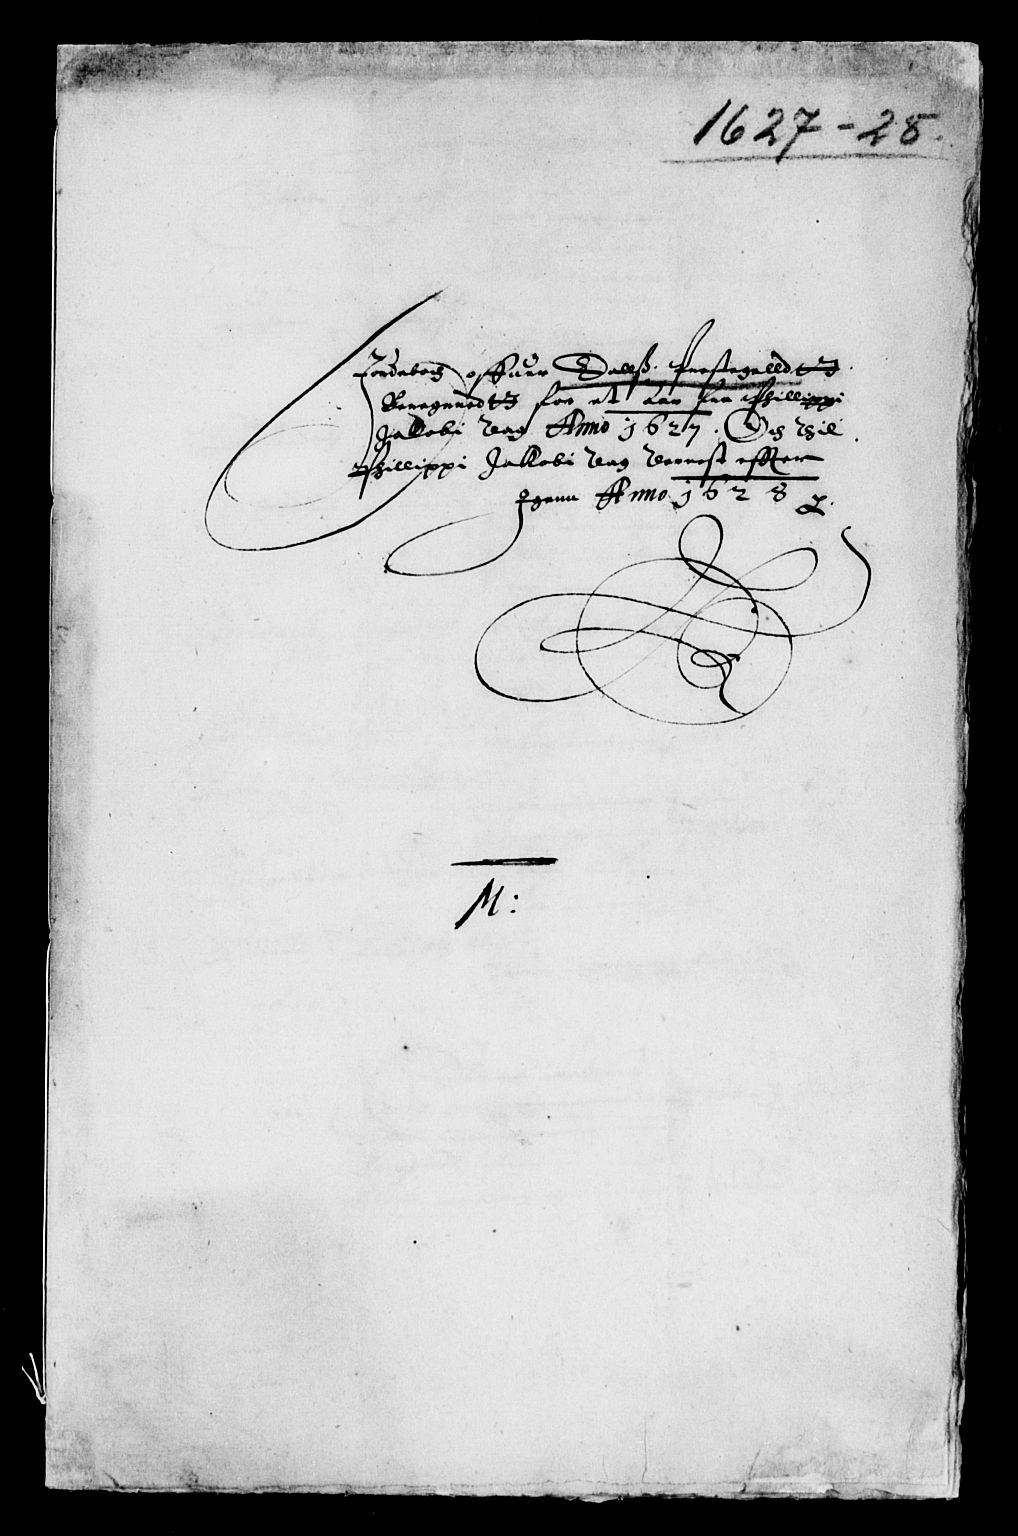 1627-28.
Jordebog offuer Dalls. Prestegelldt
Beregnedt for et Aar fra Phillippi
Jakobi dag Anno 1627. Och till
Phillippi Jakobi dag Nernest effter
Igenn Anno 1628
M: